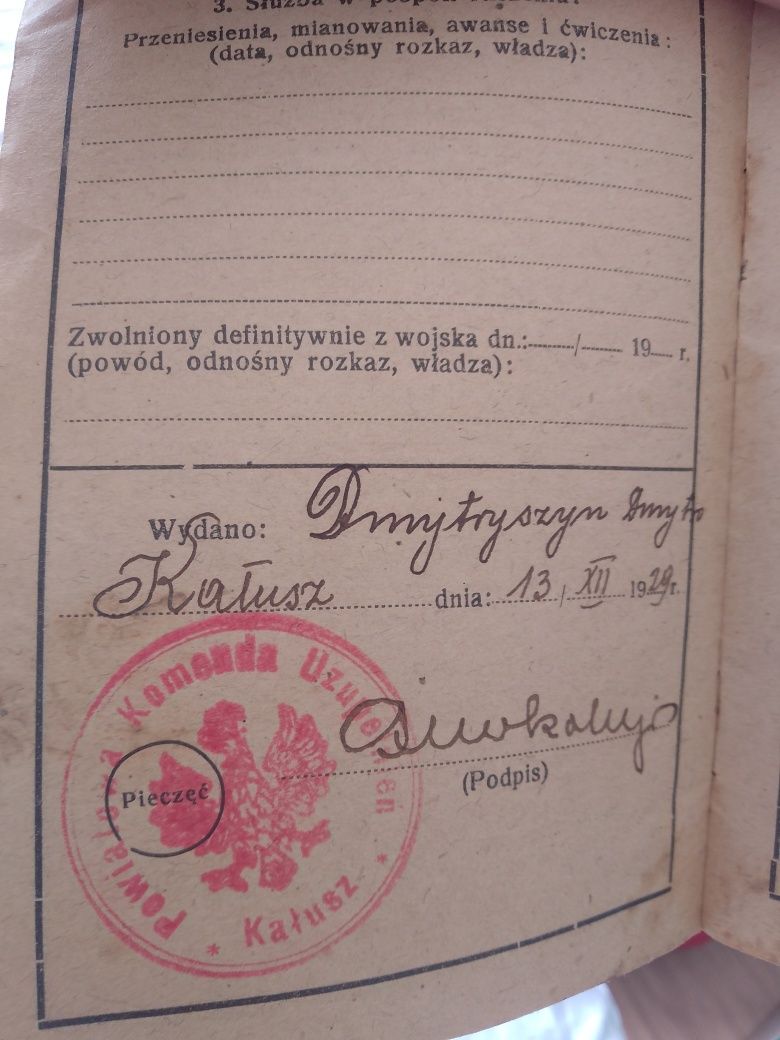 3. Służba w
Przeniesienia, mianowania, awanse i ćwiczenia:
(data, odnośny rozkaz, władza):
Zwolniony definitywnie z wojska dn.:......../........ 19.... r.
(powód, odnośny rozkaz, władza):
Wydano: Dmytryszyn Dmytro
Kałusz dnia: 13 / XII 1929 r.
Powiatowa Komenda Uzupełnień
Pieczęć
(Podpis)
* Kałusz *